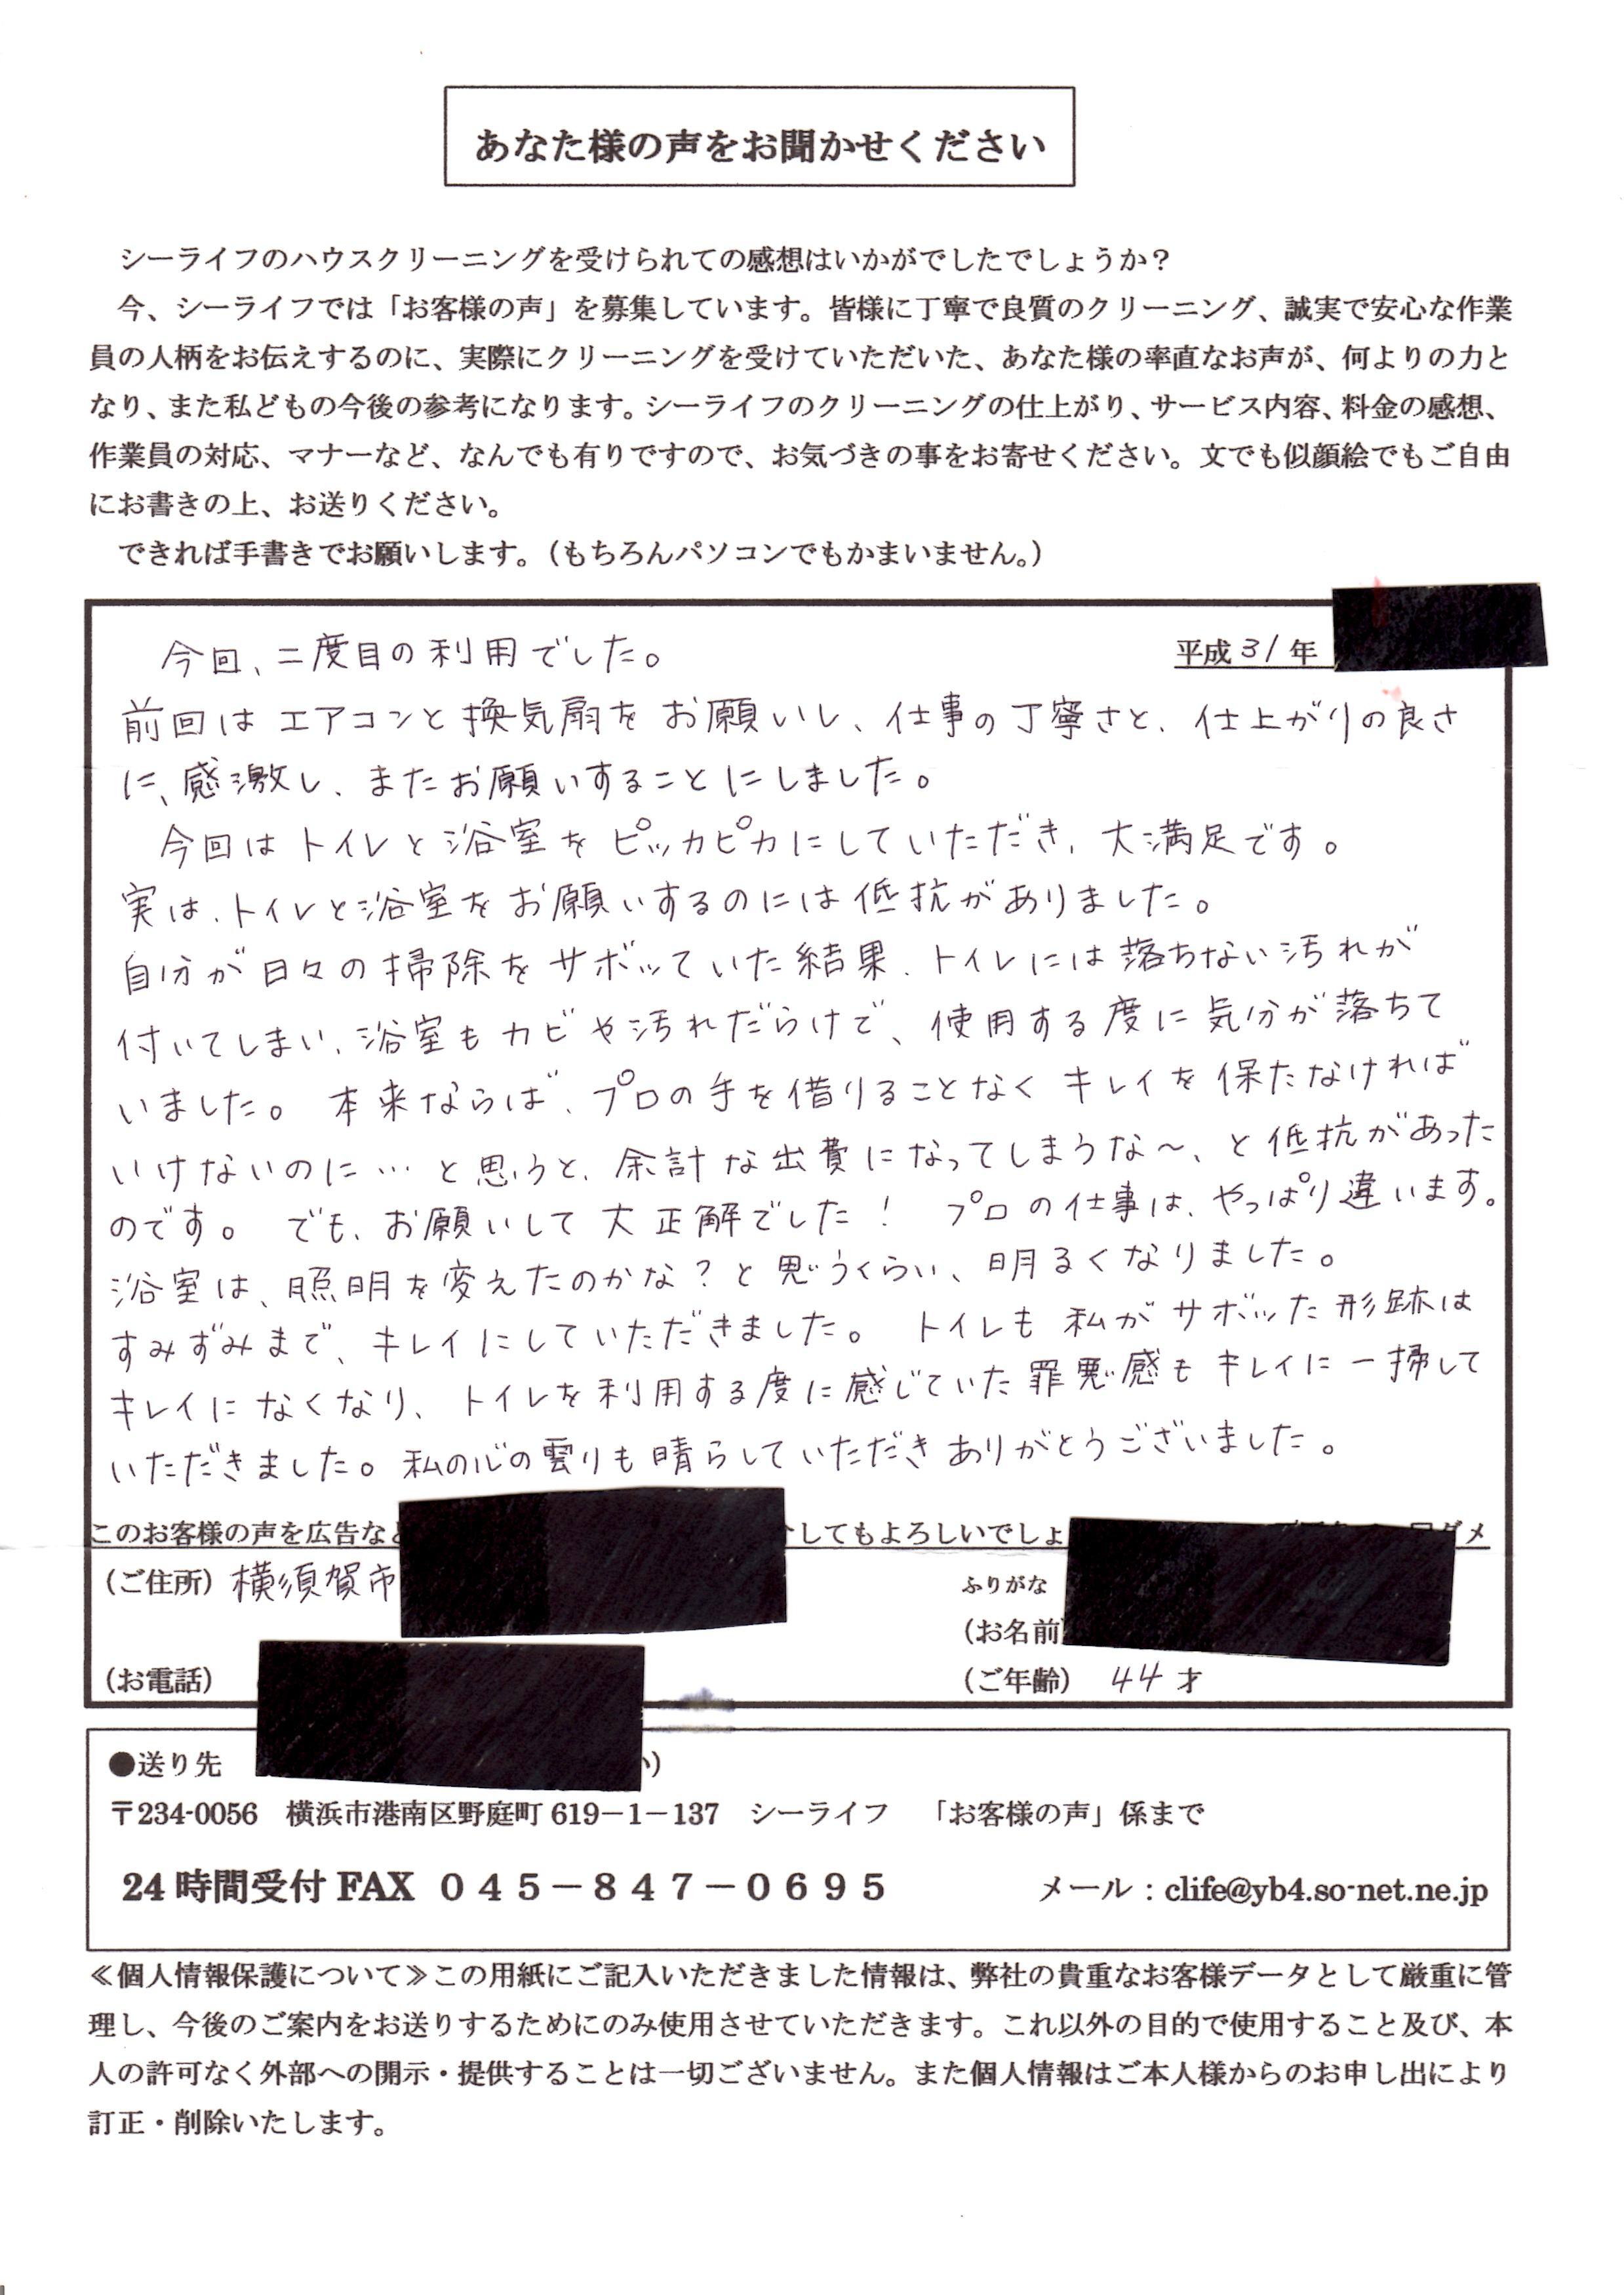 あなた様の声をお聞かせください
シーライフのハウスクリーニングを受けられての感想はいかがでしたでしょうか？
今、シーライフでは「お客様の声」を募集しています。皆様に丁寧で良質のクリーニング、誠実で安心な作業
員の人柄をお伝えするのに、実際にクリーニングを受けていただいた、あなた様の率直なお声が、何よりの力と
なり、また私どもの今後の参考になります。シーライフのクリーニングの仕上がり、サービス内容、料金の感想、
作業員の対応、マナーなど、なんでも有りですので、お気づきの事をお寄せください。文でも似顔絵でもご自由
にお書きの上、お送りください。
できれば手書きでお願いします。（もちろんパソコンでもかまいません。）
平成31年
今回、二度目の利用でした。
前回はエアコンと換気扇をお願いし、仕事の丁寧さと、仕上がりの良さ
に、感激し、またお願いすることにしました。
今回はトイレと浴室をピッカピカにしていただき、大満足です。
実は、トイレと浴室をお願いするのには低抗がありました。
自分が日々の掃除をサボッていた結果、トイレには落ちない汚れが
付いてしまい、浴室もカビや汚れだらけで、使用する度に気分が落ちて
いました。本来ならば、プロの手を借りることなくキレイを保たなければ
いけないのに…と思うと、余計な出費になってしまうな～、と低抗があった
のです。でも、お願いして大正解でした！プロの仕事は、やっぱり違います。
浴室は、照明を変えたのかな？と思うくらい、明るくなりました。
すみずみまで、キレイにしていただきました。トイレも私がサボッた形跡は
キレイになくなり、トイレを利用する度に感じていた罪悪感もキレイに一掃して
いただきました。私の心の雲りも晴らしていただきありがとうございました。
このお客様の声を広告など してもよろしいでしょ ダメ
（ご住所）横須賀市
ふりがな
（お名前
（お電話）
（ご年齢） 44才
●送り先
〒234-0056 横浜市港南区野庭町619－1－137 シーライフ 「お客様の声」係まで
24時間受付FAX ０４５－８４７－０６９５ メール：clife@yb4.so-net.ne.jp
≪個人情報保護について≫この用紙にご記入いただきました情報は、弊社の貴重なお客様データとして厳重に管
理し、今後のご案内をお送りするためにのみ使用させていただきます。これ以外の目的で使用すること及び、本
人の許可なく外部への開示・提供することは一切ございません。また個人情報はご本人様からのお申し出により
訂正・削除いたします。